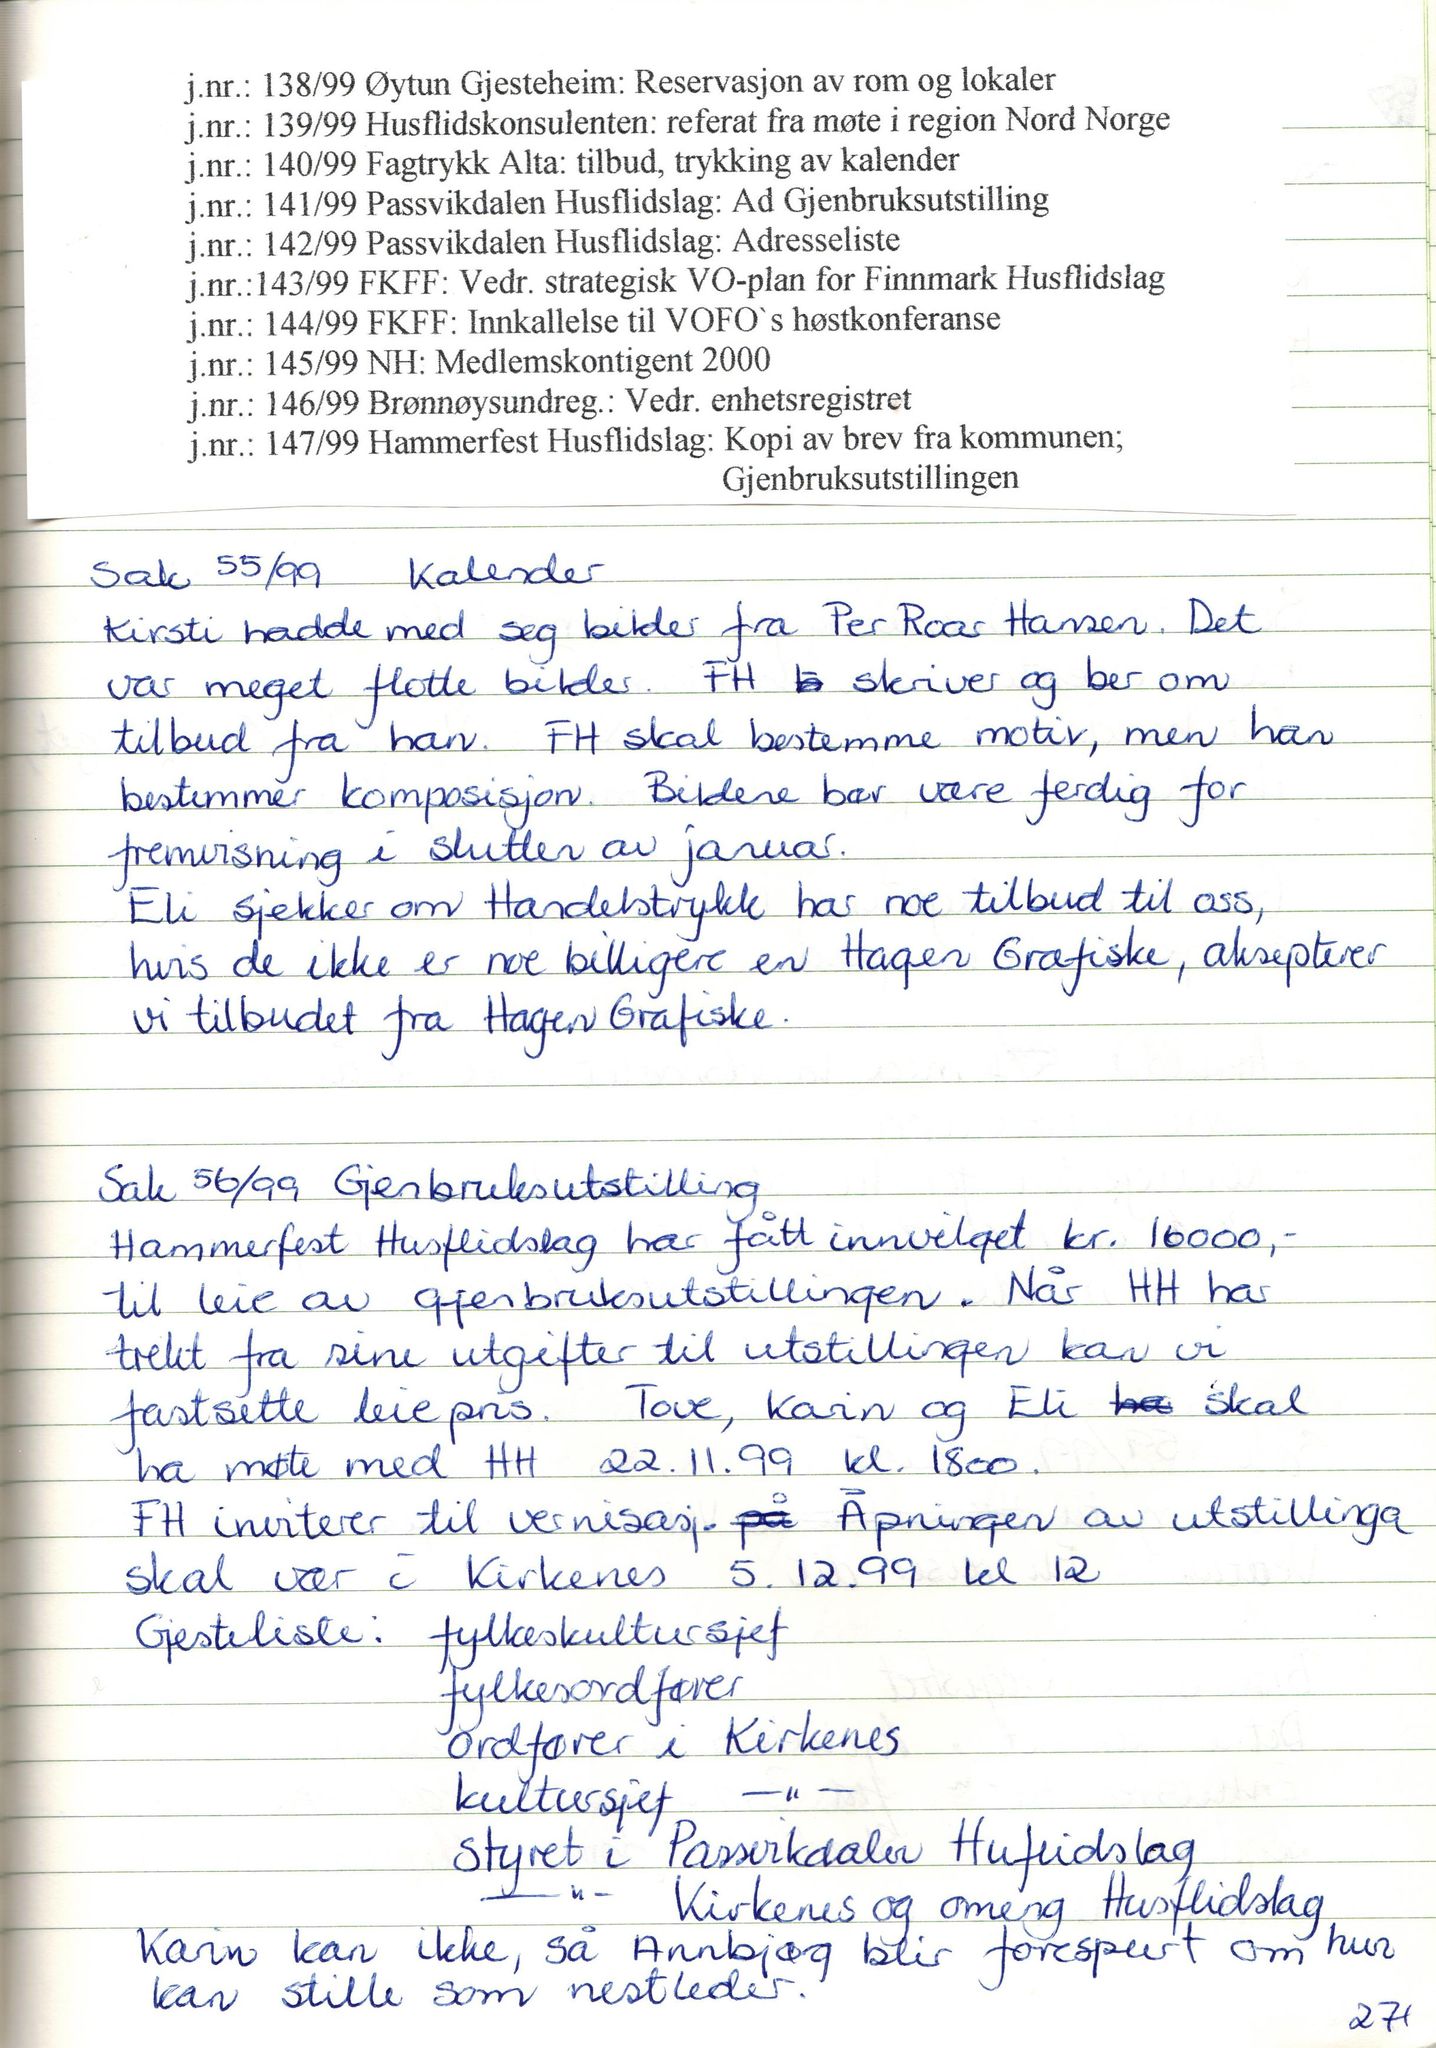 j.nr.: 138/99 Øytun Gjesteheim: Reservasjon av rom og lokaler
j.nr.: 139/99 Husflidskonsulenten: referat fra møte i region Nord Norge
j.nr.: 140/99 Fagtrykk Alta: tilbud, trykking av kalender
j.nr.: 141/99 Passvikdalen Husflidslag: Ad Gjenbruksutstilling
j.nr.: 142/99 Passvikdalen Husflidslag: Adresseliste
j.nr.:143/99 FKFF: Vedr. strategisk VO-plan for Finnmark Husflidslag
j.nr.: 144/99 FKFF: Innkallelse til VOFO`s høstkonferanse
j.nr.: 145/99 NH: Medlemskontigent 2000
j.nr.: 146/99 Brønnøysundreg.: Vedr. enhetsregistret
j.nr.: 147/99 Hammerfest Husflidslag: Kopi av brev fra kommunen;
Gjenbruksutstillingen
Sak 55/99 Kalender
Kirsti hadde med seg bilder fra Per Roar Hansen. Det
var meget flotte bilder. FH skriver og ber om
tilbud fra han. FH skal bestemme motiv, men han
bestemmer komposisjon. Bildene bør være ferdig for
fremvisning i slutten av januar.
Eli sjekker om Handelstrykk har noe tilbud til oss,
hvis de ikke er noe billigere en Hagen Grafiske, aksepterer
vi tilbudet fra Hagen Grafiske.
Sak 56/99 Gjenbruksutstilling
Hammerfest Husflidslag har fått innvilget kr. 16000,-
til leie av gjenbruksutstillingen. Når HH har
trekt fra sine utgifter til utstillingen kan vi
fastsette leiepris. Tove, Karin og Eli ha skal
ha møte med HH 22.11.99 kl. 1800.
FH inviterer til vernisasj. på Åpningen av utstillinga
skal vær i Kirkenes 5.12.99 kl 12
Gjesteliste: fylkeskultursjef
fylkesordfører
ordfører i Kirkenes
kultursjef —"—
styret i Passvikdalen Huflidslag
—"— Kirkenes og omeng Husflidslag
Karin kan ikke, så Annbjørg blir forespurt om hun
kan stille som nestleder.
271